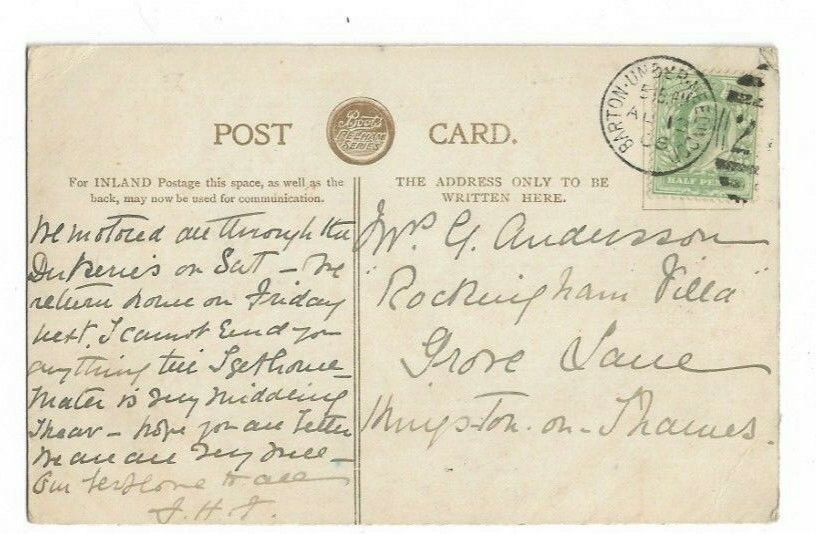 POST CARD.
Boot's
PELHAM
SERIES
BARTON-UNDER-NEEDWOOD
AU
08
HALF PE
For INLAND Postage this space, as well as the
back, may now be used for communication.
We motored all through the
Dukeries on Sat – We
return home on Friday
next. I cannot send you
anything till I get home –
Mater is very middling
I hear – hope you are better
We are all very nice –
Our best love to all
J.H.A.
THE ADDRESS ONLY TO BE
WRITTEN HERE.
Mrs G. Andersson
"Rockingham Villa"
Grove Lane
Kingston-on-Thames.